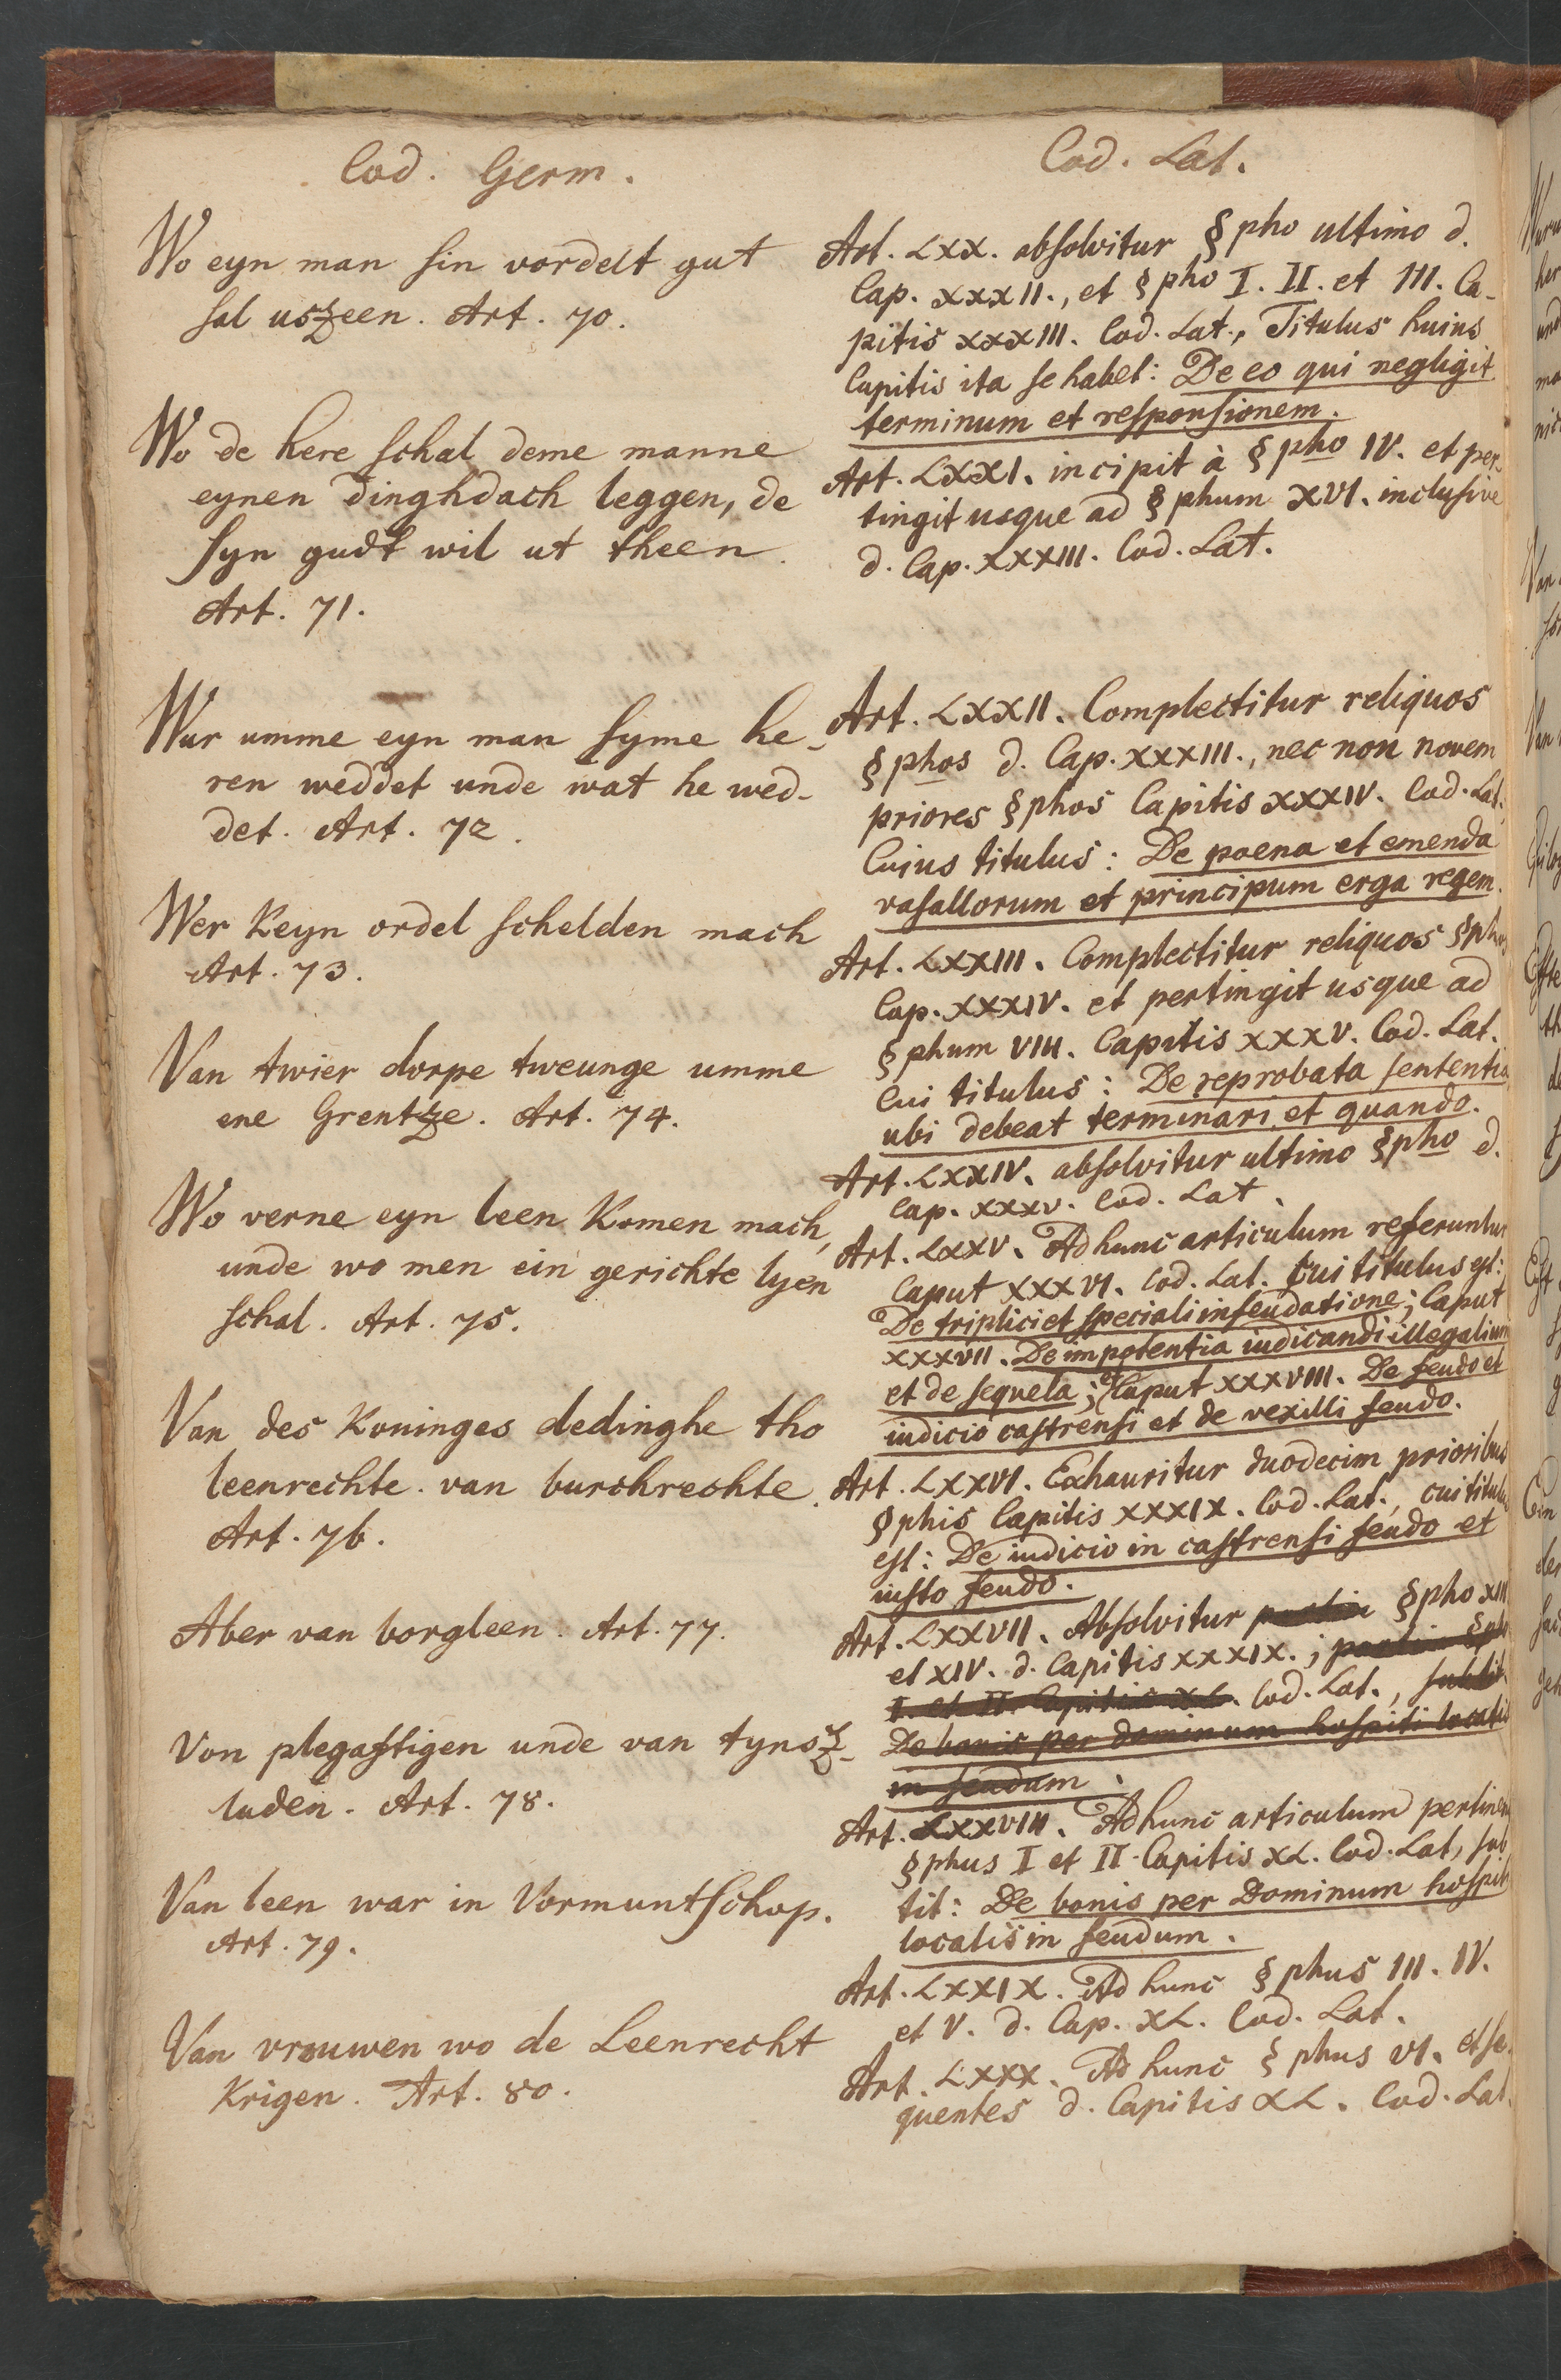 Cod. Germ.
Wo eyn man sin vordelt gut
sal uszeen. Art. 70.
Wo de here schal deme manne
eynen dinghdach leggen, de
syn gudt wil ut theen.
Art. 71.
Wur umme eyn man syme he-
ren weddet unde wat he wed-
det. Art. 72.
Wer Keyn ordel schelden mach
Art. 73.
Van twier dorpe tweunge umme
ene Grentze. Art. 74.
Wo verne eyn leen Komen mach,
unde wo men ein gerichte lyen
schal. Art. 75.
Van des Koninges dedinghe tho
leenrechte. van burchrechte.
Art. 76.
Aber van borgleen. Art. 77.
Von plegastigen unde van tynsz-
luden. Art. 78.
Van leen war in Vormuntschop.
Art. 79.
Van vrouwen wo de Leenrecht
Krigen. Art. 80.
Cod. Lat.
Art. LXX. absolvitur §pho ultimo d.
Cap. XXXII., et §pho I. II. et III. Ca-
pitis XXXIII. Cod. Lat., Titulus huius
Capitis ita se habet: De eo qui negligit
terminum et responsionem.
Art. LXXI. incipit à §pho IV. et per-
tingit usque ad §phum XVI. inclusive
d. Cap. XXXIII. Cod. Lat.
Art. LXXII. Complectitur reliquos
§phos d. Cap. XXXIII., nec non novem
priores §phos Capitis XXXIV. Cod. Lat.
Cuius titulus: De poena et emenda
vasallorum et principum erga regem.
Art. LXXIII. Complectitur reliquos §phos
Cap. XXXIV. et pertingit usque ad
§phum VIII. Capitis XXXV. Cod. Lat.
Cui titulus: De reprobata sententia
ubi debeat terminari et quando.
Art. LXXIV. absolvitur ultimo §pho d.
Cap. XXXV. Cod. Lat.
Art. LXXV. Ad hunc articulum referuntur
Caput XXXVI. Cod. Lat. Cui titulus est:
De triplici et speciali infeudatione; Caput
XXXVII. De impotentia iudicandi illegalium
et de sequela; et Caput XXXVIII. De feudo et
iudicio castrensi et de vexilli feudo.
Art. LXXVI. Exhauritur duodecim prioribus
§phis Capitis XXXIX. Cod. Lat., cui titulus
est: De iudicio in castrensi feudo et
iusto feudo.
Art. LXXVII. Absolvitur partim §pho XIII
et XIV. d. Capitis XXXIX.; partim §pho
I. et II. Capitis XL. Cod. Lat., sub tit.
De bonis per dominum hospiti locatis
in feudum.
Art. LXXVIII. Ad hunc articulum pertinent
§phus I et II Capitis XL. Cod. Lat, sub
tit: De bonis per Dominum hospiti
locatis in feudum.
Art. LXXIX. Ad hunc §phus III. IV.
et V. d. Cap. XL. Cod. Lat.
Art. LXXX. Ad hunc §phus VI. et se-
quentes d. Capitis XL. Cod. Lat.